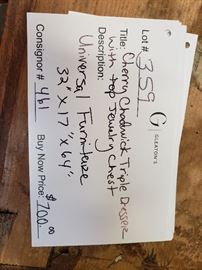 Lot # 359
G GLEATON'S
Title: Cherry Chadwick Triple Dresser
with top Jewelry Chest
Description:
Universal Furniture
32" X 17" X 64"
Consignor # 461
Buy Now Price: $700.00